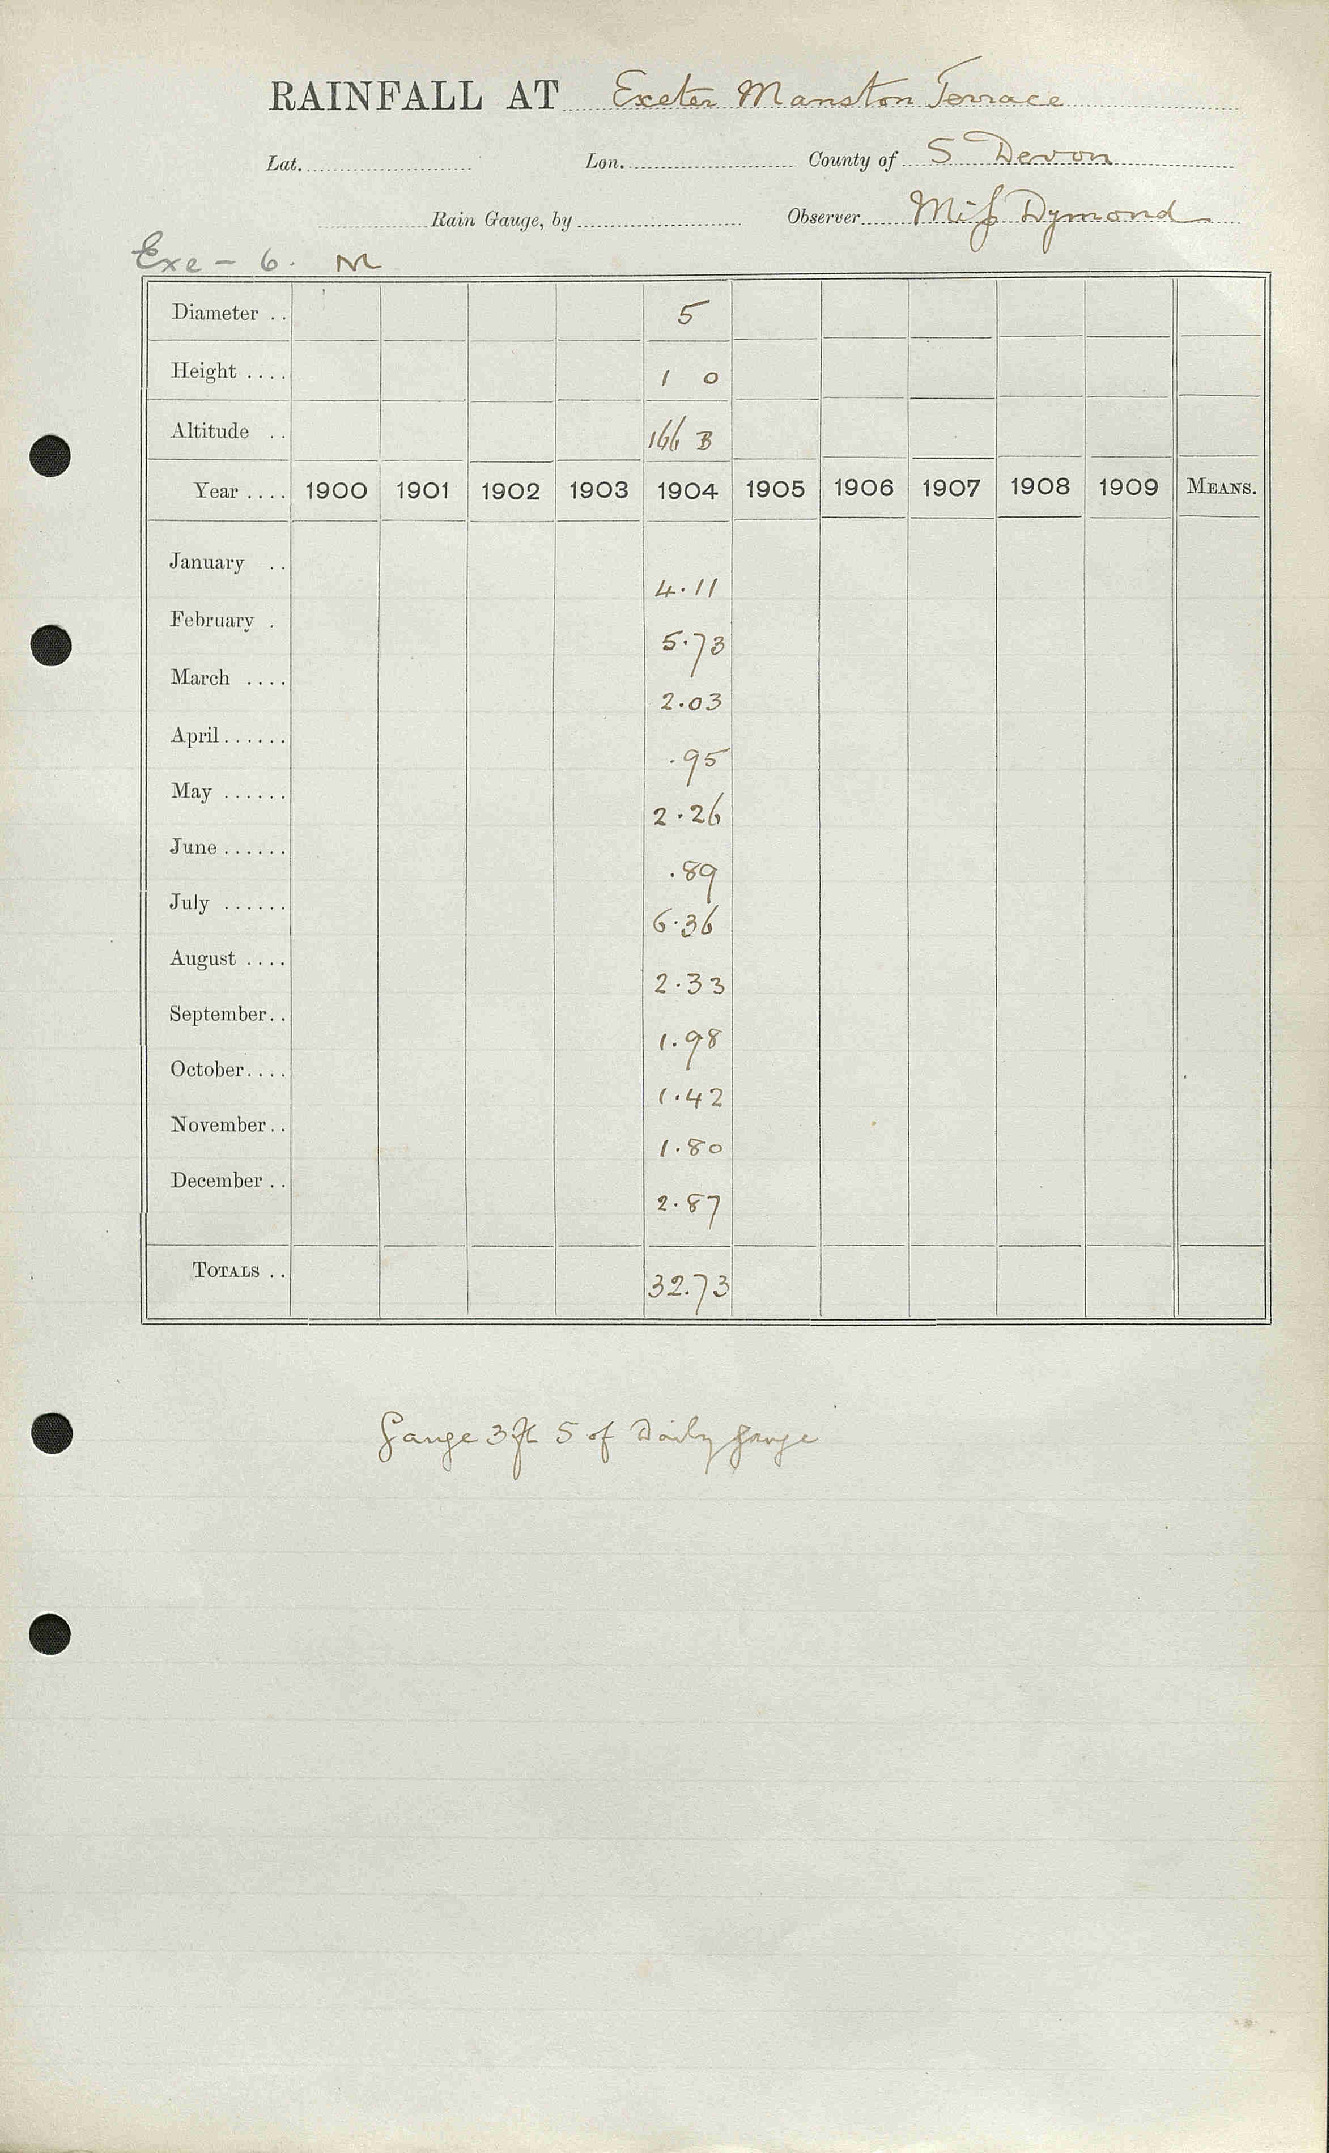 RAINFALL AT Exeter Manston Terrace
Lat. Lon. County of S Devon
Rain Gauge, by Observer Miss Dymond
Exe - 6. M
Diameter .. 5
Height .... 1 0
Altitude .. 166 B
Year .... 1900 1901 1902 1903 1904 1905 1906 1907 1908 1909 MEANS.
January .. 4.11
February . 5.73
March .... 2.03
April...... .95
May ...... 2.26
June ...... .89
July ...... 6.36
August .... 2.33
September.. 1.98
October.... 1.42
November.. 1.80
December .. 2.87
TOTALS .. 32.73
Gauge 3 ft S of Daily gauge